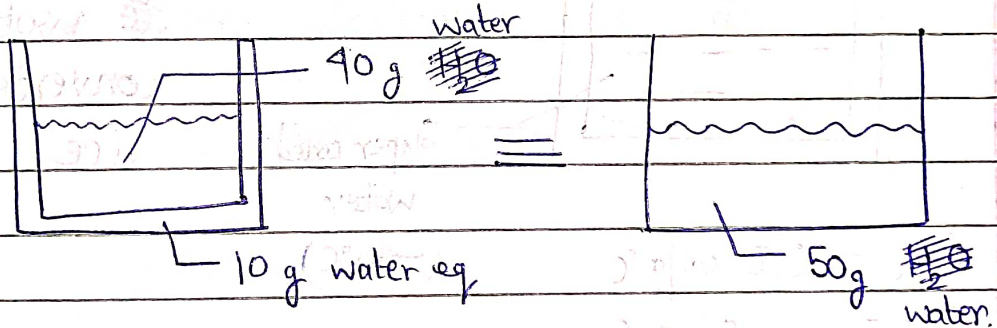 water
40 g
10 g water eq
50g
water.